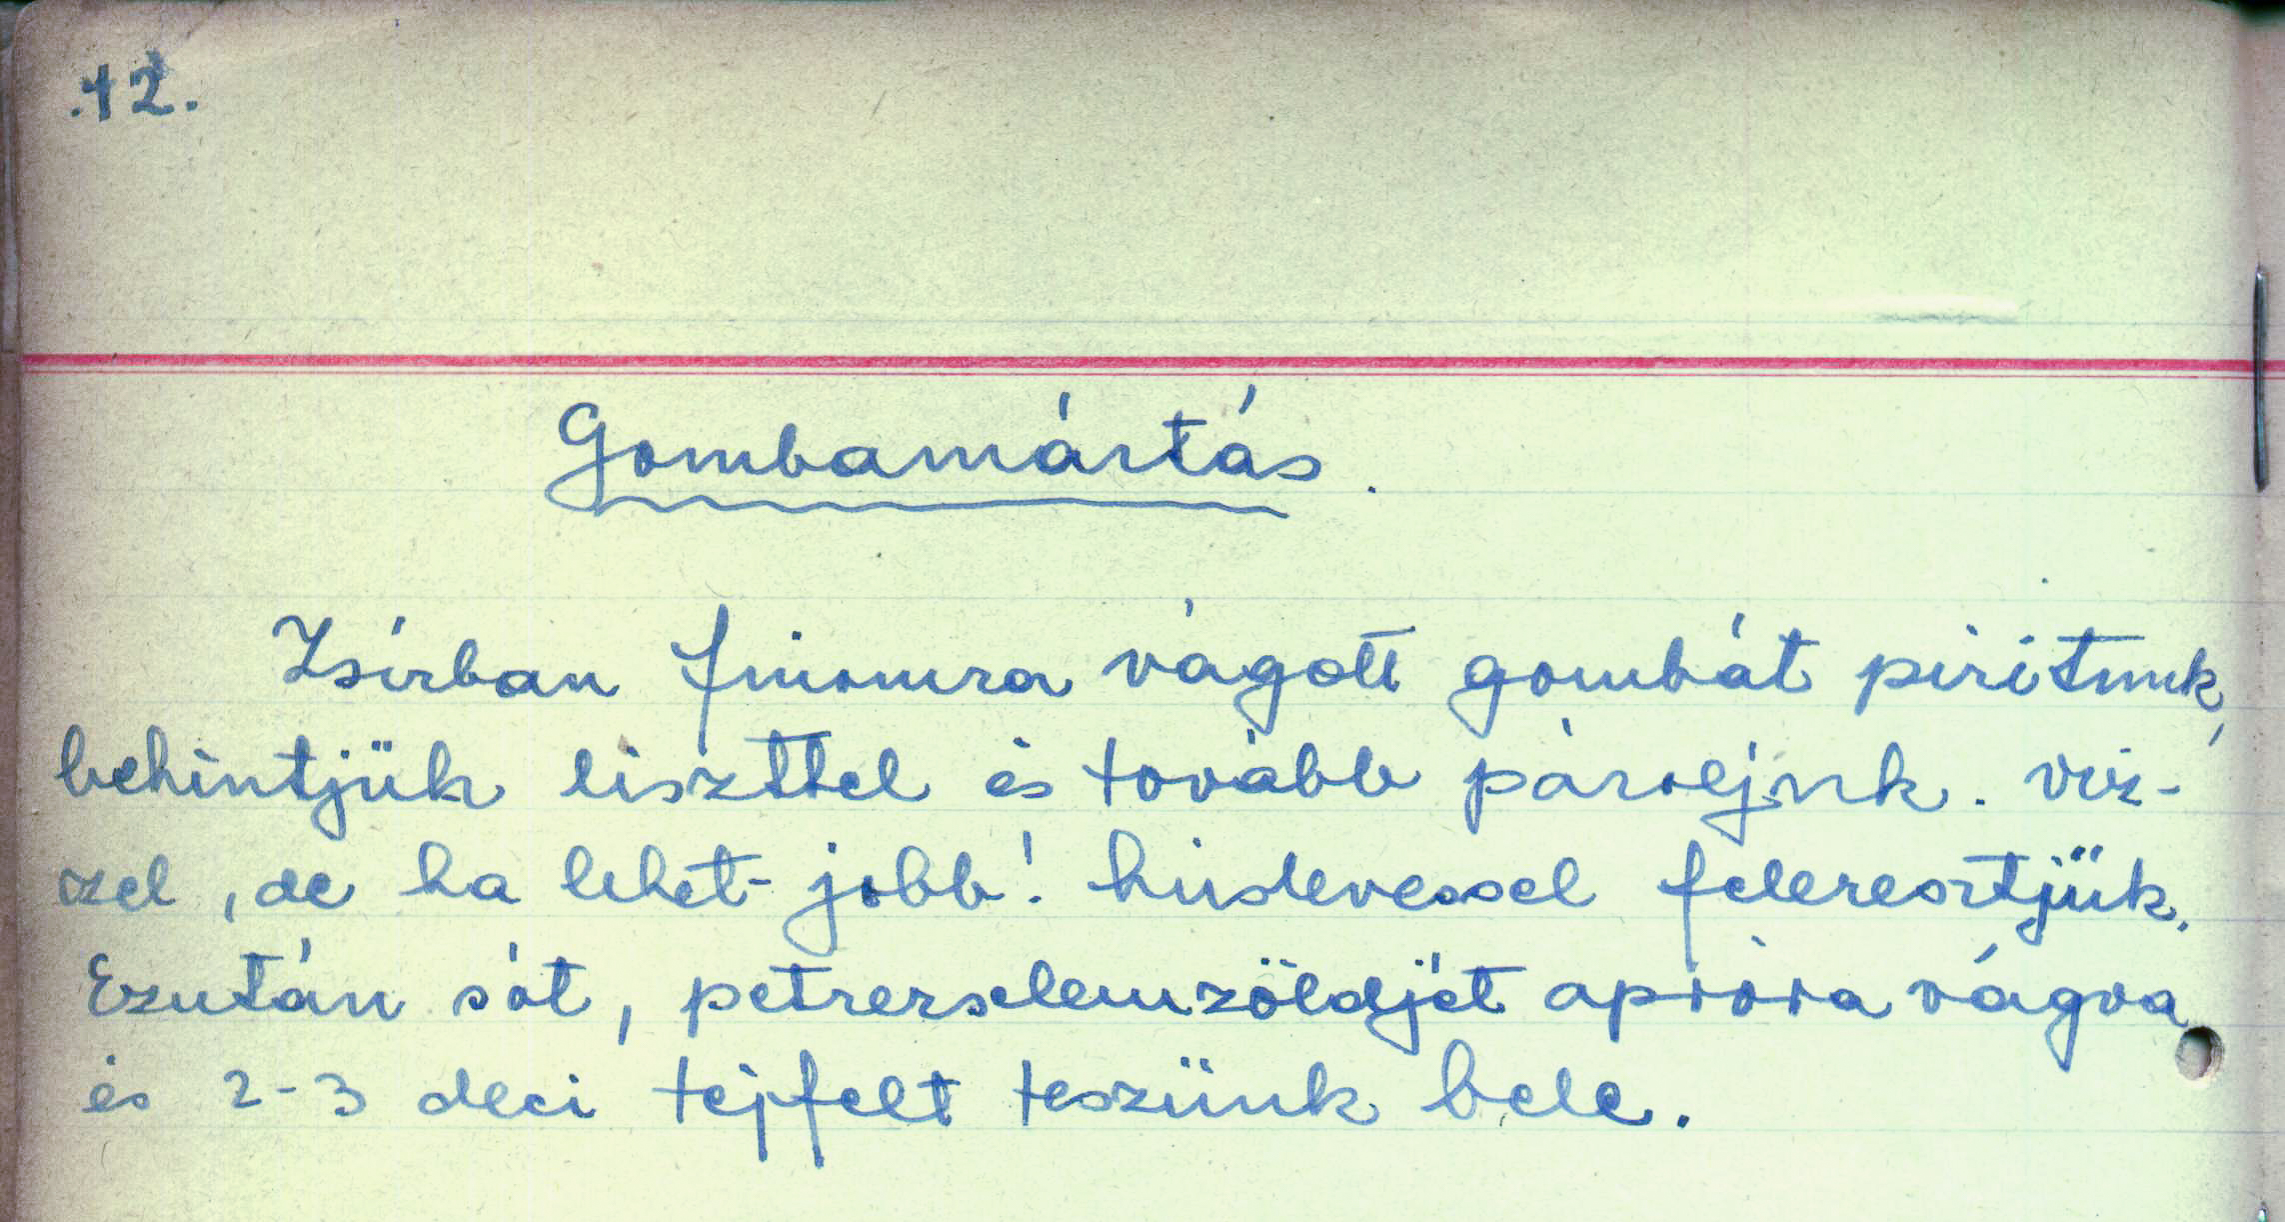 .12.
Gombamártás.
Zsírban finomra vágott gombát pirítunk,
behintjük liszttel és tovább pároljuk. viz-
zel, de ha lehet- jobb! húslevessel feleresztjük.
Ezután sót, petrerselemzöldjét apróra vágva
és 2-3 deci tejfelt teszünk bele.